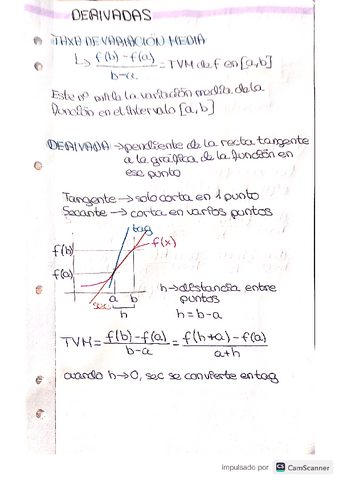 DERIVADAS
TAXA DE VARIACIÓN MEDIA
↳ f(b)-f(a) / b-a = TVM de f en [a,b]
Este nº mide la variación media de la
función en el intervalo [a,b]
DERIVADA → pendiente de la recta tangente
a la gráfica de la función en
ese punto
Tangente → solo corta en 1 punto
Secante → corta en varios puntos
tag
f(x)
f(b)
f(a)
a b
sec
h
h → distancia entre
puntos
h = b-a
TVM = f(b)-f(a) / b-a = f(h+a)-f(a) / a+h
cuando h→0, sec se convierte en tag
impulsado por CS CamScanner